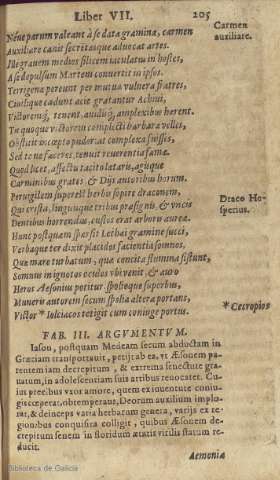 Liber VII. 205
Néue parum valeant à se data gramina, carmen
Carmen
Auxiliare canit, secretasque aduocat artes.
auxiliare.
Ille grauem medios silicem iaculatus in hostes,
A se depulsum Martem conuertit in ipsos.
Terrigenæ pereunt per mutua vulnera fratres,
Ciuilíque cadunt acie gratantur Achiui,
Victorémq; tenent, auidísq; amplexibus hærent.
Tu quoque victorem complecti barbara velles,
Obstitit incepto pudor: at complexa fuisses,
Sed te ne faceres, tenuit reuerentia famæ.
Quod licet, affectu tacito lætaris, agísque
Carminibus grates & Diis autoribus horum.
Peruigilem superest herbis sopire draconem,
Draco He-
Qui crista, linguísque tribus præsignis, & vncis
sperius.
Dentibus horrendus, custos erat arboris aureæ.
Hunc postquam sparsit Lethæi gramine succi,
Verbáque ter dixit placidos facientia somnos,
Quæ mare turbatum, quæ concita flumina sistunt,
Somnus in ignotos oculos vbi venit, & auro
Heros Aesonius potitur, spolióque superbus,
Muneris autorem secum spolia altera portans,
Victor * Iolciacos tetigit cum coniuge portus.
* Cecropios
FAB. III. ARGVMENTVM.
Iason, postquam Medeam secum abductam in
Græciam transportauit, petijt ab ea, vt Æsonem pa-
rentem iam decrepitum, & extrema senectute gra-
uatum, in adolescentiam suis artibus reuocaret. Cu-
ius precibus vxor amore, quem ex iuuentute coniu-
gis cœperat, obtemperans, Deorum auxilium implo-
rat, & deinceps varia herbarum genera, varijs ex re-
gionibus conquisita colligit, quibus Æsonem de-
crepitum senem in floridum ætatis virilis statum re-
ducit.
Aemonia
Biblioteca de Galicia